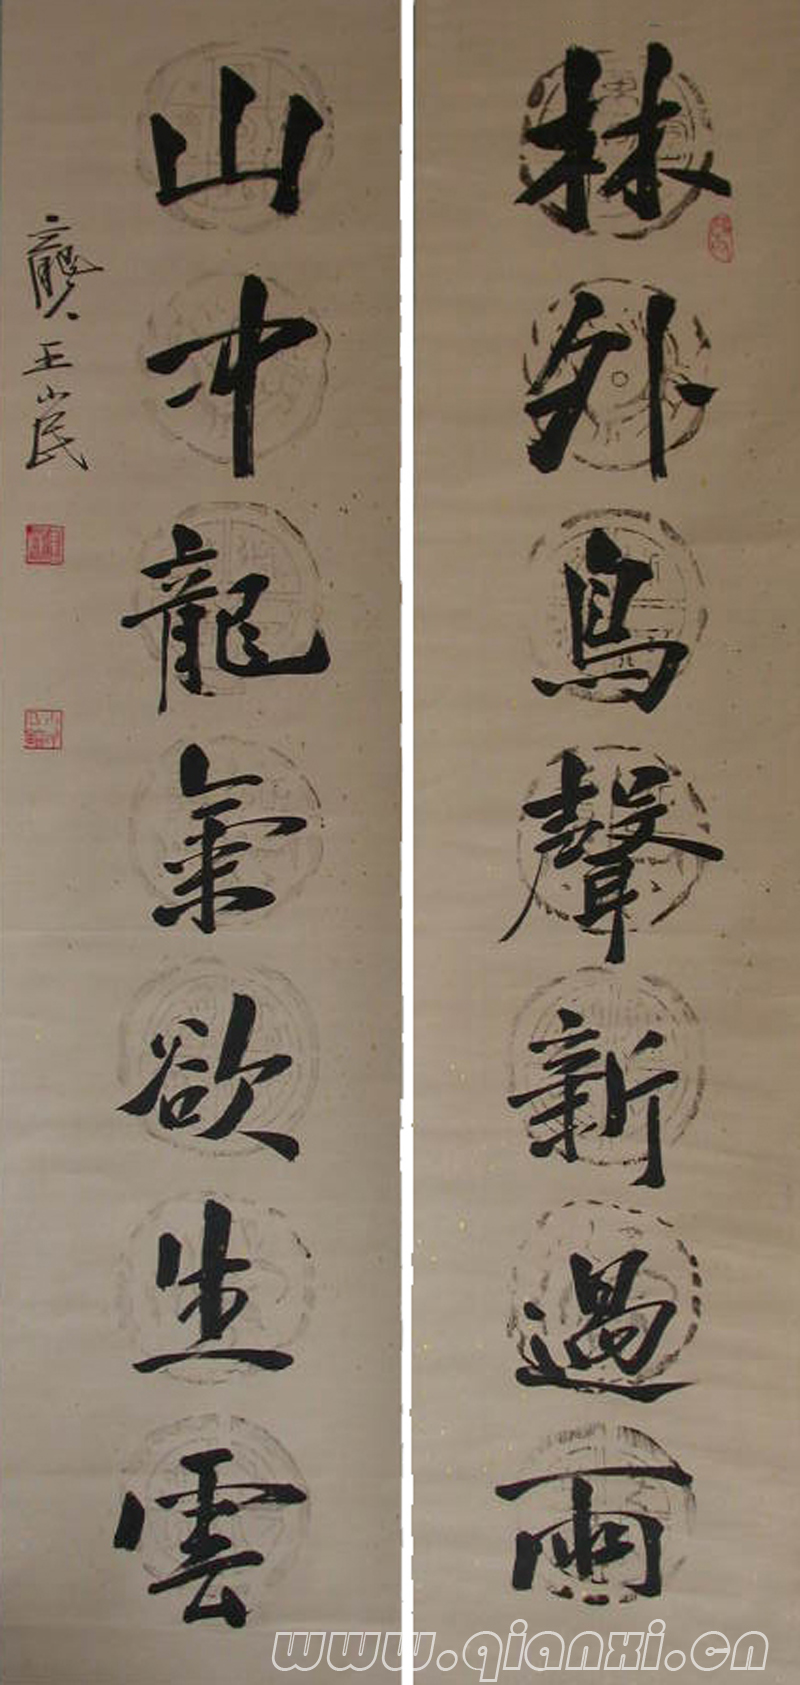 林外鳥聲新過雨
山冲龍氣欲生雲
龔王小民
www.qianxi.cn